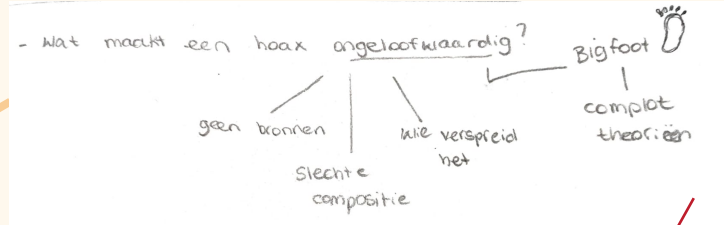 - wat maakt een hoax ongeloofwaardig?
Bigfoot
complot
theorieën
geen bronnen
slechte
compositie
wie verspreid
het